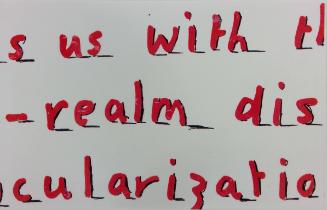 s us with th
-realm dis
cularizatio